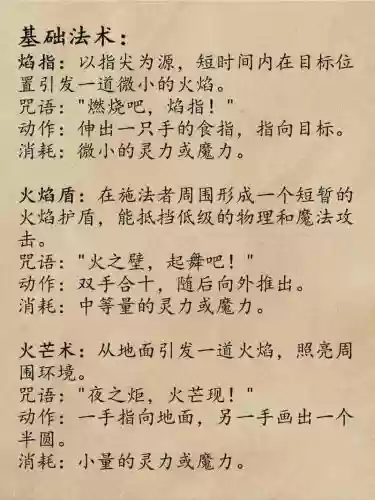 基础法术：
焰指：以指尖为源，短时间内在目标位
置引发一道微小的火焰。
咒语："燃烧吧，焰指！"
动作：伸出一只手的食指，指向目标。
消耗：微小的灵力或魔力。
火焰盾：在施法者周围形成一个短暂的
火焰护盾，能抵挡低级的物理和魔法攻
击。
咒语："火之壁，起舞吧！"
动作：双手合十，随后向外推出。
消耗：中等量的灵力或魔力。
火芒术：从地面引发一道火焰，照亮周
围环境。
咒语："夜之炬，火芒现！"
动作：一手指向地面，另一手画出一个
半圆。
消耗：小量的灵力或魔力。